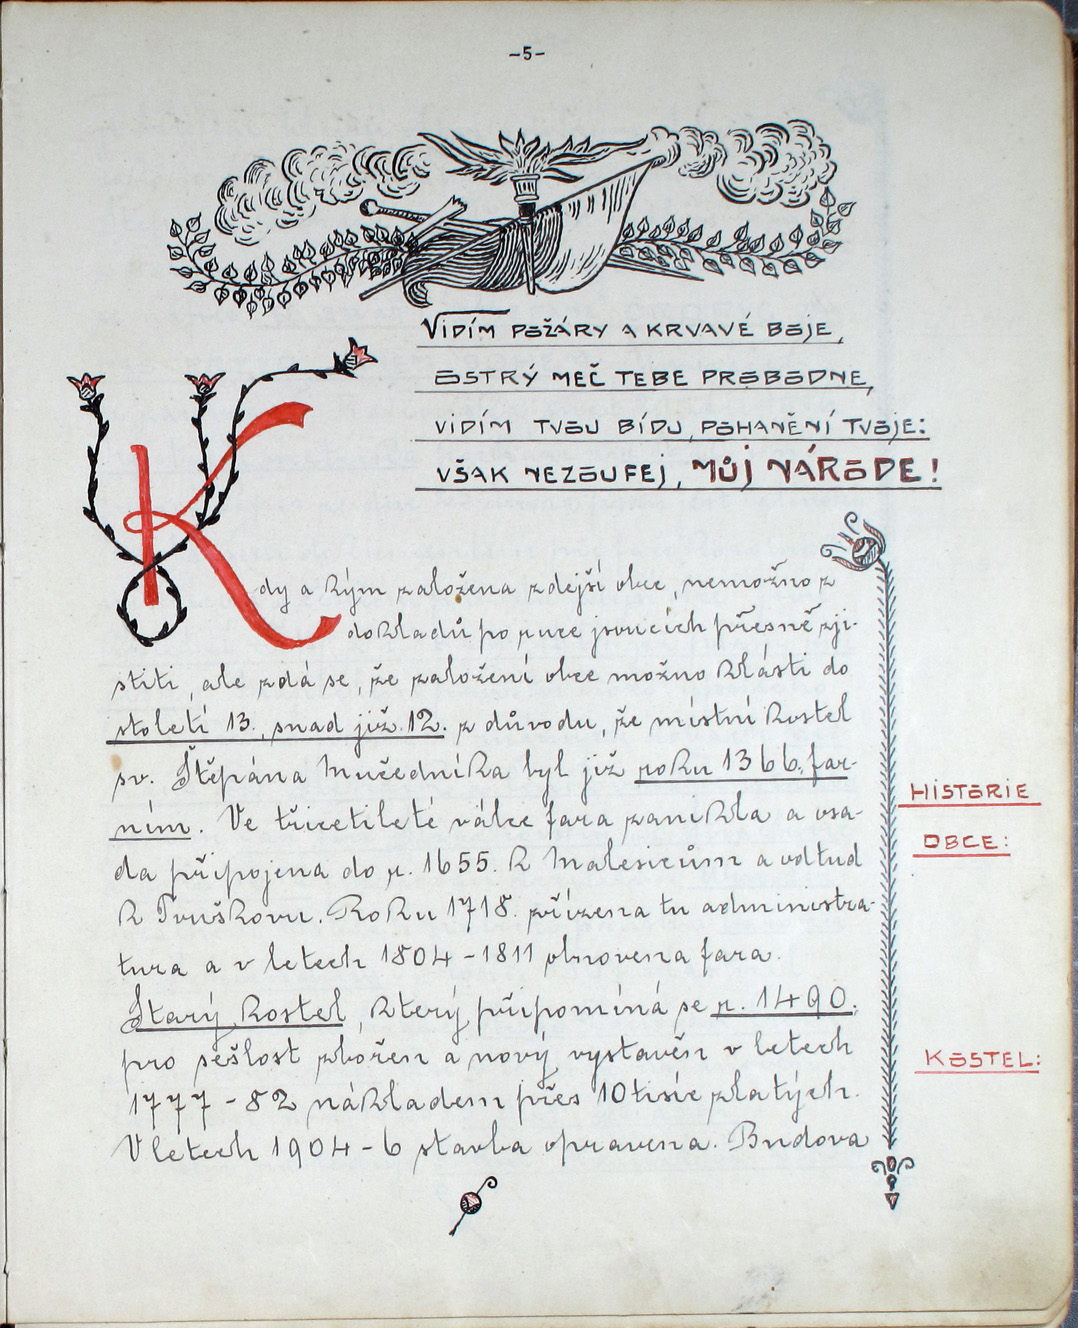 -5-
Vidím požáry a krvavé boje,
ostrý meč tebe probodne,
vidím tvou bídu, pohanění tvoje:
však nezoufej, můj národe!
Kdy a kým založena zdejší obce, nemožno z
dokladů po ruce jsoucích přesně zji-
stiti, ale zdá se, že založení obce možno klásti do
století 13., snad již 12. z důvodu, že místní kostel
sv. Štěpána Mučedníka byl již roku 1366. far-
ním. Ve třicetileté válce fara zanikla a osa-
da připojena do r. 1655. k Malesicům a odtud
k Tuškovu. Roku 1718. zřízena tu administra-
tura a v letech 1804-1811 obnovena fara.
Starý kostel, který připomíná se r. 1490.,
pro sešlost zbořen a nový vystavěn v letech
1777-82 nákladem přes 10 tisíc zlatých.
V letech 1904-6 stavba opravena. Budova
Historie
obce:
Kostel: